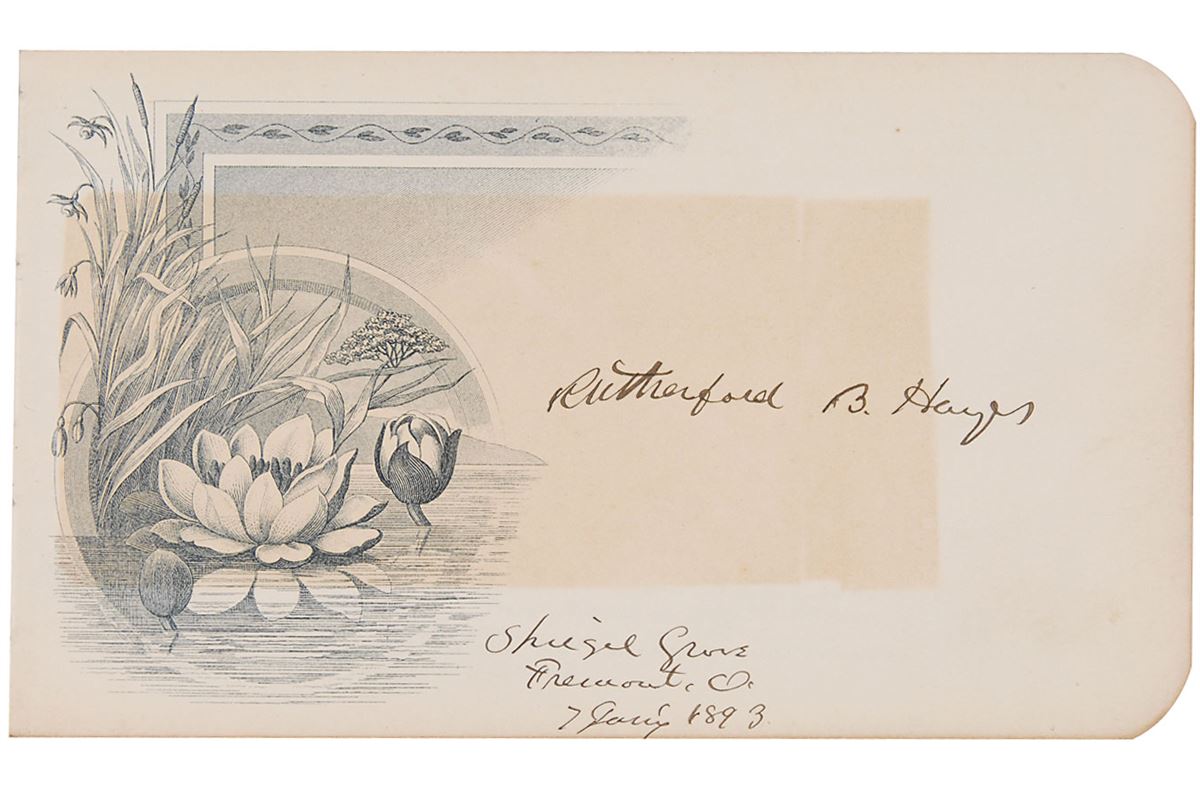 Rutherford B. Hayes
Spiegel Grove
Fremont, O.
7 Jany 1893